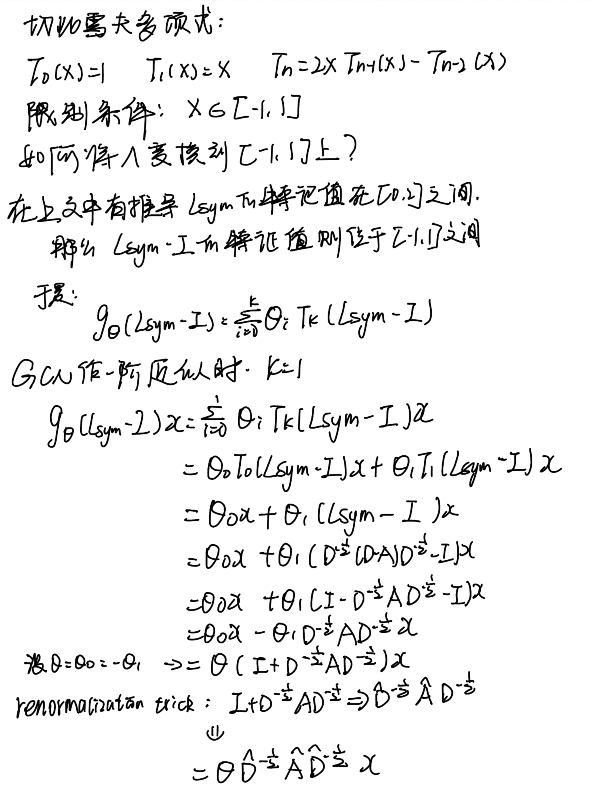 切比雪夫多项式:
T₀(x)=1 T₁(x)=x Tn=2xTn-1(x)-Tn-2(x)
限制条件: x∈[-1,1]
如何将λ变换到[-1,1]上?
在上文中有推导Lsym的特征值在[0,2]之间.
那么 Lsym-I的特征值则位于[-1,1]之间
于是:
gθ(Lsym-I)=∑_{i=0}^{k} θi Tk(Lsym-I)
GCN作一阶近似时. K=1
gθ(Lsym-I)x=∑_{i=0}^{1} θi Tk(Lsym-I)x
=θ₀T₀(Lsym-I)x+θ₁T₁(Lsym-I)x
=θ₀x+θ₁(Lsym-I)x
=θ₀x+θ₁(D^{-1/2}(D-A)D^{-1/2}-I)x
=θ₀x+θ₁(I-D^{-1/2}AD^{-1/2}-I)x
=θ₀x-θ₁D^{-1/2}AD^{-1/2}x
设θ=θ₀=-θ₁ →=θ(I+D^{-1/2}AD^{-1/2})x
renormalization trick: I+D^{-1/2}AD^{-1/2}⇒D̂^{-1/2}ÂD^{-1/2}
⇓
=θD̂^{-1/2}ÂD̂^{-1/2}x